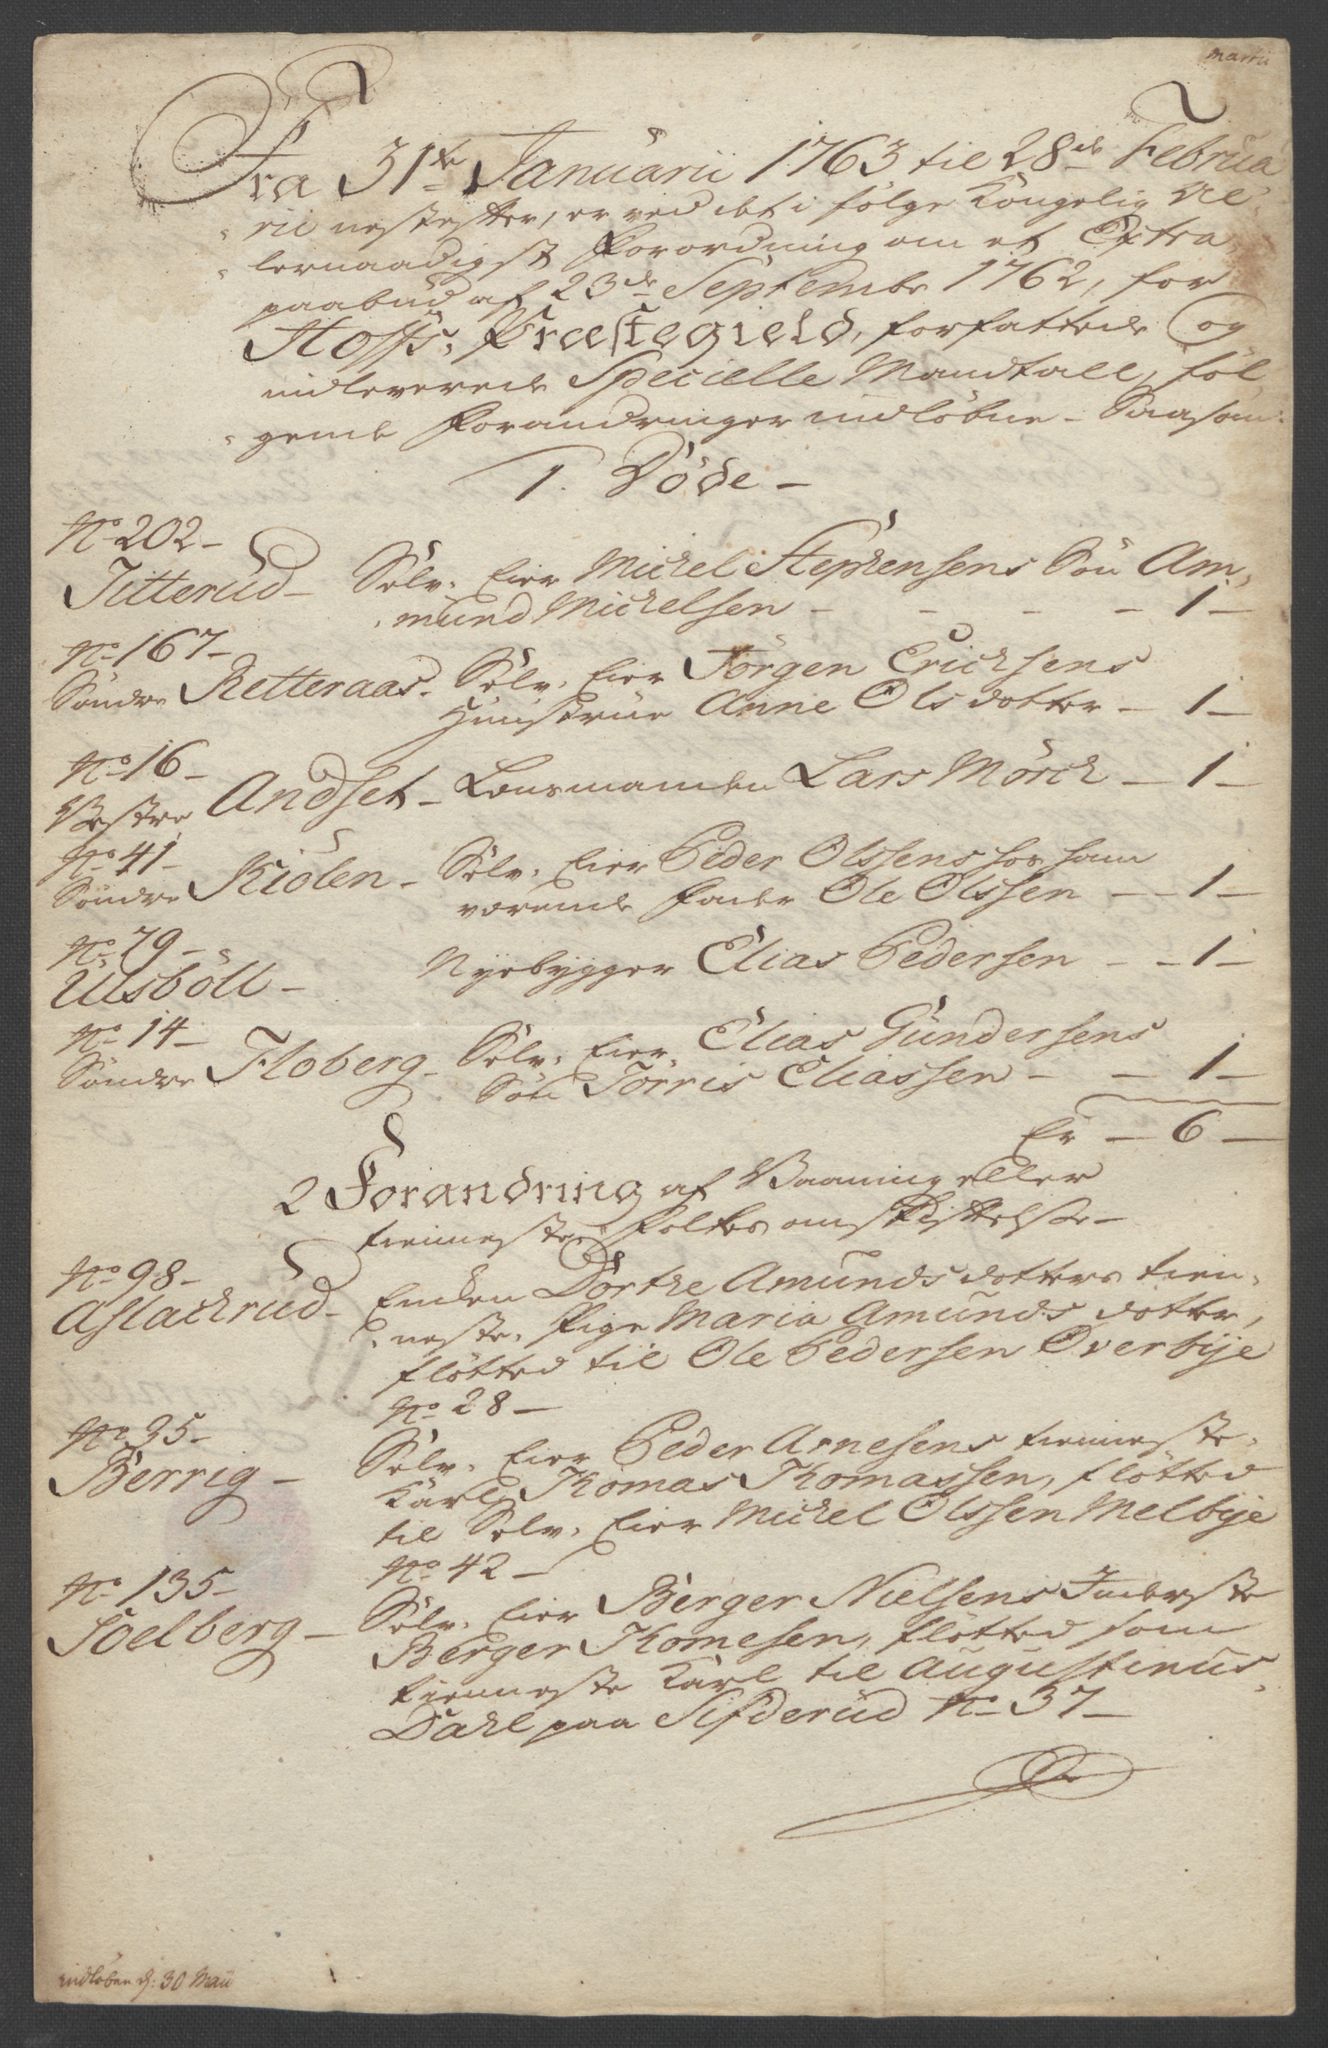 Martii
Fra 31te Januarii 1763 til 28de Februa
rii nestefter, er ved det i følge Kongelig Al-
lernaadigst Forordning om et Extra
paabud af 23de Septembr 1762, for
Hoffs Præstegield, forfattede og
indleverede Specielle Mandtall, føl-
gende Forandringer indløbne - Saasom:
1. Døde -
No 202 -
Titterud - Selv-Eier Michel Stephensens Søn Am-
mund Michelsen - - - - 1 -
No 167 -
Søndre Retteraas - Selv-Eier Jörgen Erichsens
Huustrue Anne Olsdotter - 1 -
No 16 -
Vestre Andset - Lensmanden Lars Mörch - 1 -
No 41 -
Søndre Kiölen - Selv-Eier Peder Olssens hos ham
værende Fader Ole Olssen - - 1 -
No 79 -
Ulsböll - Nyebygger Elias Pedersen - - 1 -
No 14 -
Søndre Floberg - Selv-Eier Elias Gundersens
Søn Törris Eliassen - - 1 -
Er - 6 -
2 Forandring af Vaaning eller
tienneste Folkes omskiftelse -
No 98 -
Aslachrud - Enken Dorthe Amundsdotters tien-
neste-Pige Maria Amundsdotter,
fløtted til Ole Pedersen Overbye
No 28 -
No 95 -
Berrig - Selv-Eier Peder Arnesens tienneste-
Karl Thomas Thomassen, fløtted
til Selv-Eier Michel Olssen Melbye
No 42 -
No 135 -
Soelberg - Selv-Eier Berger Nielsens Inderste
Berger Thomesen, fløtted som
tienneste Karl til Augustinus
Dahl paa Sifderud No 37 -
indløben d: 30 Maii